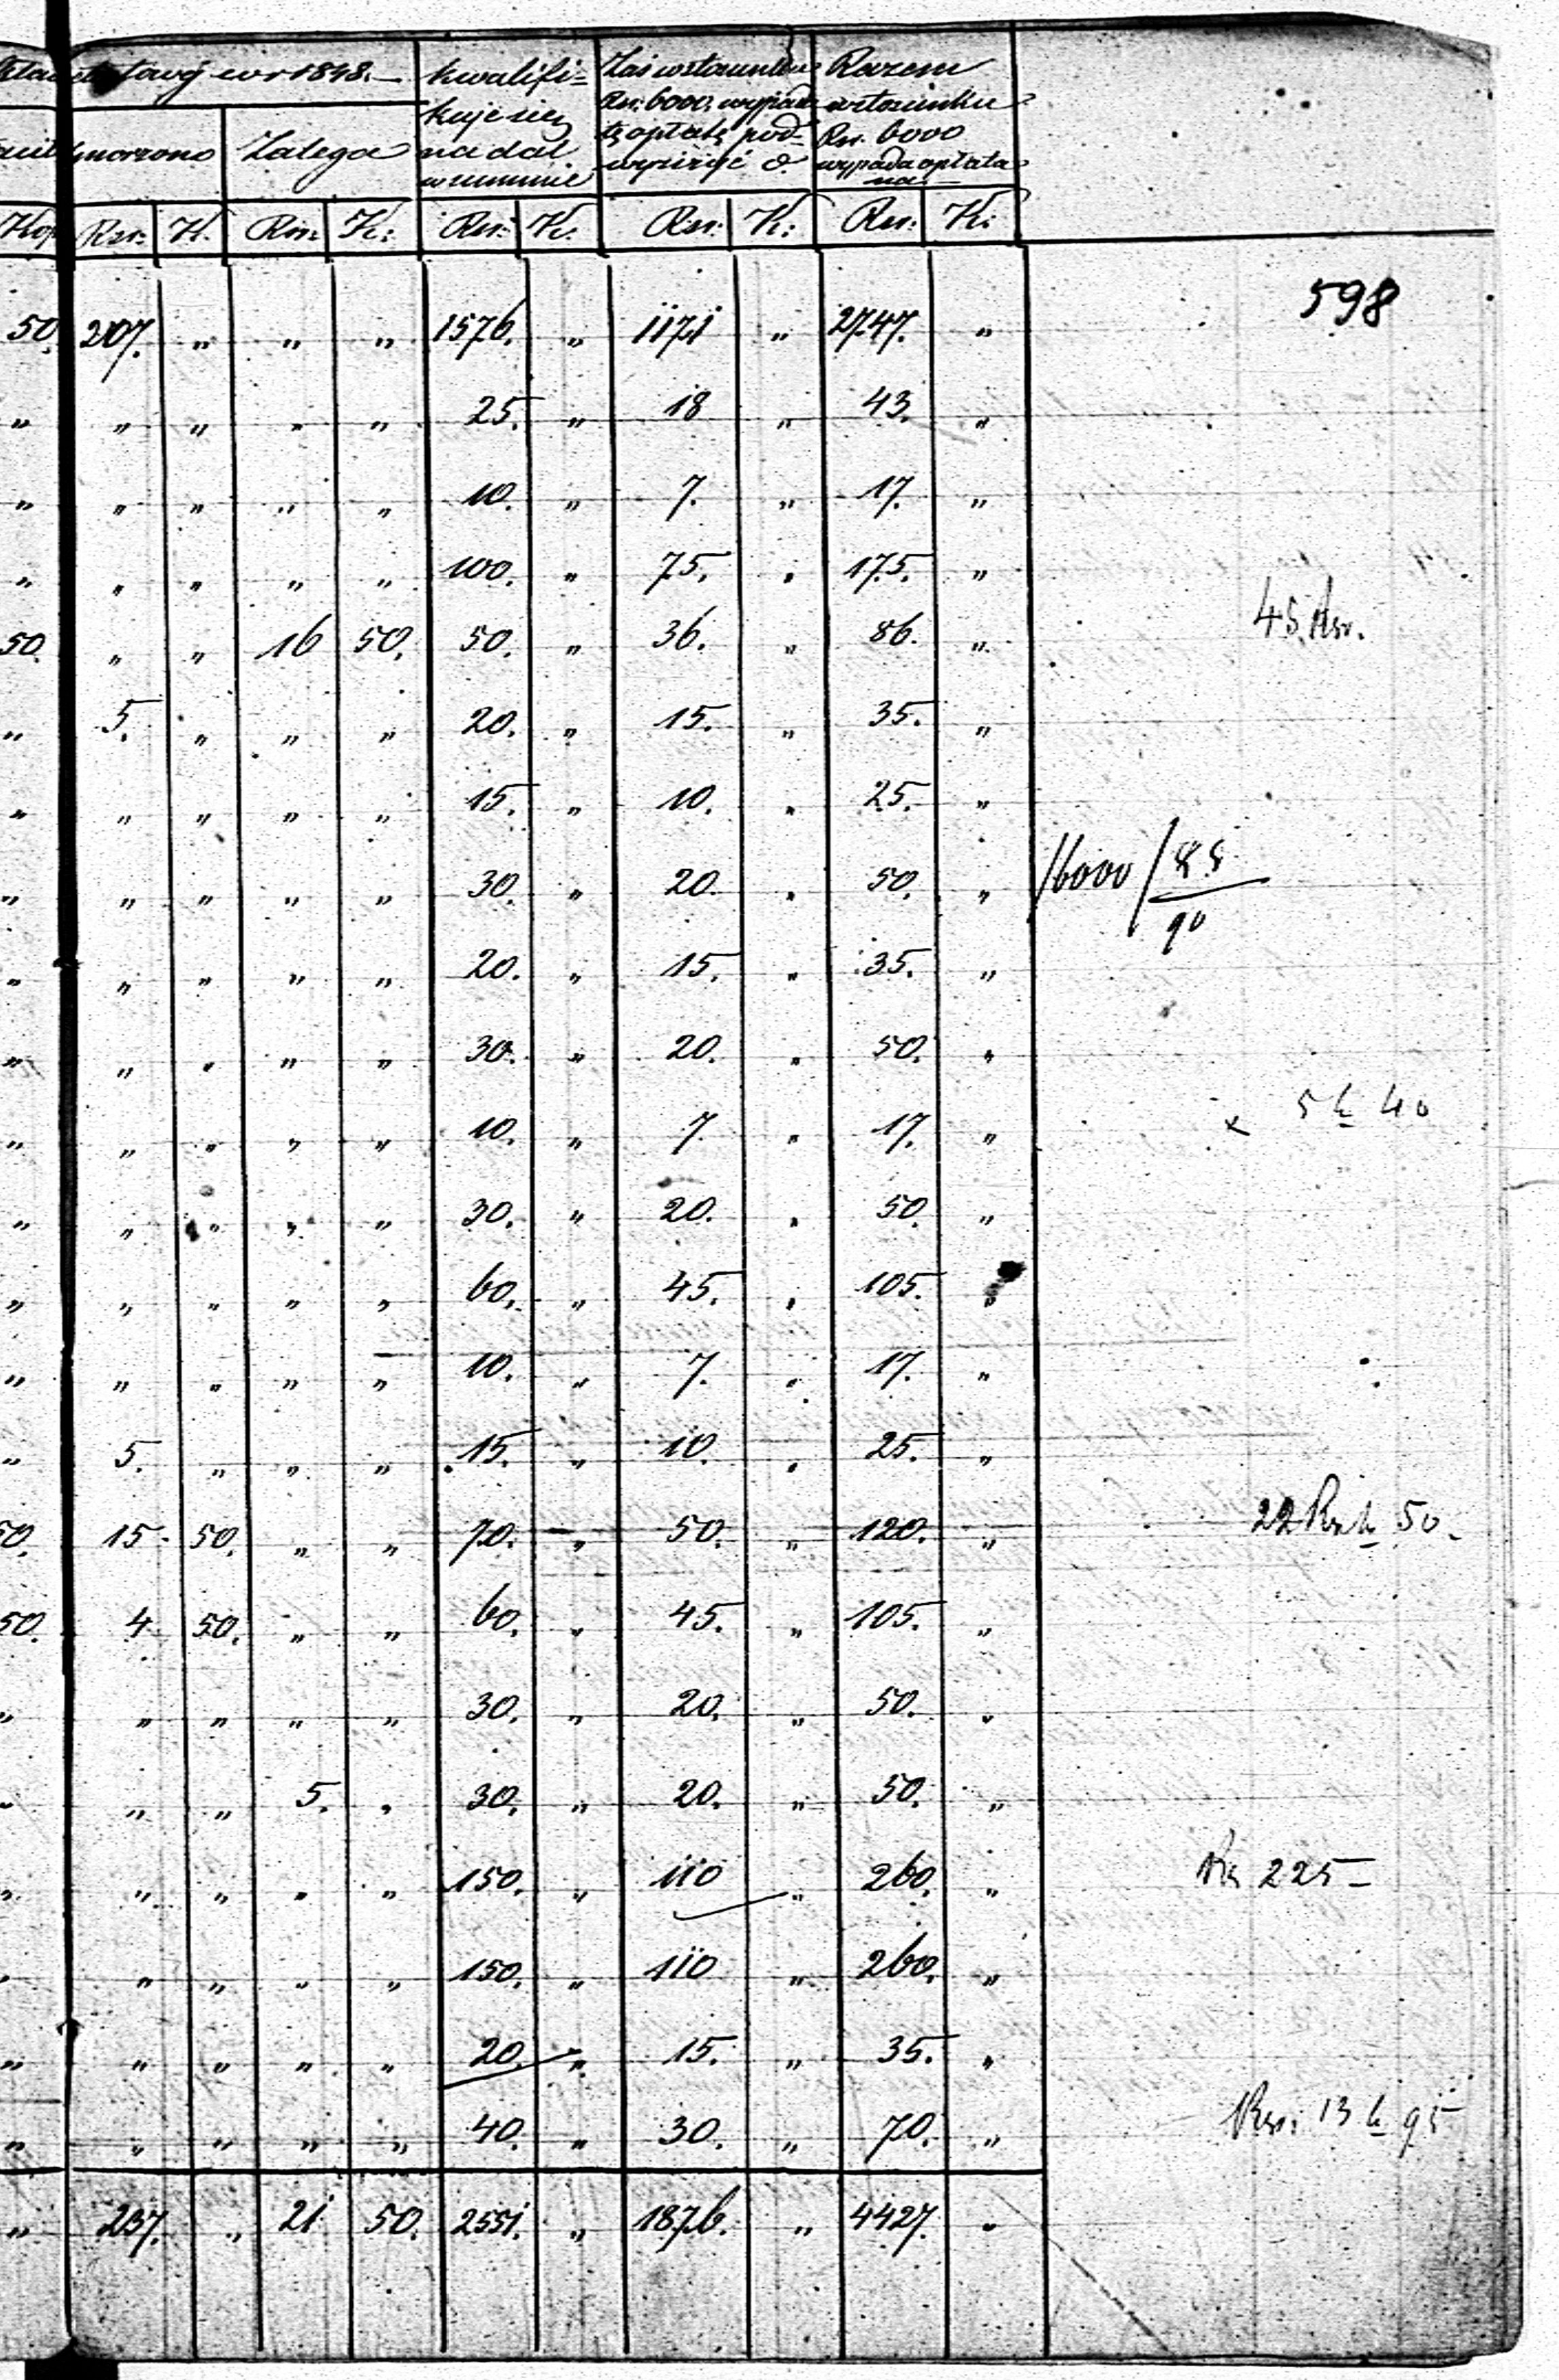 w r 1848.
kwalifi=
kuje się
na dal
w summie
Zaś w stosunku
Rsr. 6000. wypada
tę opłatę pod=
wyższyć o
Razem
w stosunku
Rsr. 6000
wypada opłata
na
umorzono Zalega
Kop Rsr: K. Rsr: K: Rsr: K. Rsr: K: Rsr: K:
598
50. 207. „ „ „ 1576. „ 1171 „ 2747. „
„ „ „ „ „ 25. „ 18 „ 43. „
„ „ „ „ „ 10. „ 7. „ 17. „
„ „ „ „ „ 100. „ 75. „ 175. „
50. „ „ 16 50. 50. „ 36. „ 86. „ 45. Rsr.
„ 5. „ „ „ 20. „ 15. „ 35. „
„ „ „ „ „ 15. „ 10. „ 25. „
„ „ „ „ „ 30. „ 20. „ 50. „ /6000/
90
„ „ „ „ „ 20. „ 15. „ 35. „
„ „ „ „ „ 30. „ 20. „ 50. „
„ „ „ „ „ 10. „ 7. „ 17. „ x 5 k 40
„ „ „ „ „ 30. „ 20. „ 50. „
„ „ „ „ „ 60. „ 45. „ 105. „
„ „ „ „ „ 10. „ 7. „ 17. „
„ 5. „ „ „ 15. „ 10. „ 25. „
50. 15 50. „ „ 70. „ 50. „ 120. „ 22 Rsr k 50.
50. 4 50. „ „ 60. „ 45. „ 105. „
„ „ „ „ „ 30. „ 20. „ 50. „
„ „ „ 5. „ 30. „ 20. „ 50. „
„ „ „ „ „ 150. „ 110 „ 260. „ Rs 225 –
„ „ „ „ „ 150. „ 110 „ 260. „
„ „ „ „ „ 20. „ 15. „ 35. „
„ „ „ „ „ 40. „ 30. „ 70. „ Rsr: 13 k 95
„ 237. „ 21 50. 2551. „ 1876. „ 4427. „